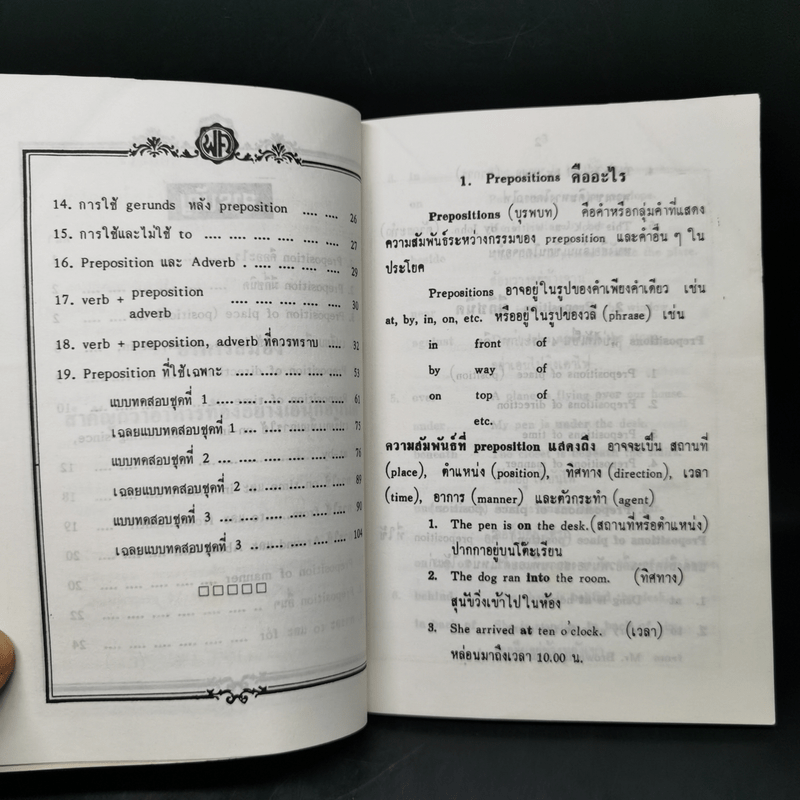 พศ
14. การใช้ gerunds หลัง preposition .... .... 26
15. การใช้และไม่ใช้ to .... .... .... .... .... .... 27
16. Preposition และ Adverb . .... .... .... .... 29
17. verb + preposition adverb .... .... .... .... .... 30
18. verb + preposition, adverb ที่ควรทราบ .... 32
19. Preposition ที่ใช้เฉพาะ .... .... .... .... .... 53
แบบทดสอบชุดที่ 1 .... .... .... .... .... 61
เฉลยแบบทดสอบชุดที่ 1 .... .... .... .... 75
แบบทดสอบชุดที่ 2 .... .... .... .... .... 76
เฉลยแบบทดสอบชุดที่ 2 .. .... .... .... .... 89
แบบทดสอบชุดที่ 3 .... .... .... .... .... 90
เฉลยแบบทดสอบชุดที่ 3 .. .... .... .... .... 104
1. Prepositions คืออะไร
Prepositions (บุรพบท) คือคำหรือกลุ่มคำที่แสดง
ความสัมพันธ์ระหว่างกรรมของ preposition และคำอื่น ๆ ใน
ประโยค
Prepositions อาจอยู่ในรูปของคำเพียงคำเดียว เช่น
at, by, in, on, etc. หรืออยู่ในรูปของวลี (phrase) เช่น
in front of
by way of
on top of
etc.
ความสัมพันธ์ที่ preposition แสดงถึง อาจจะเป็น สถานที่
(place), ตำแหน่ง (position), ทิศทาง (direction), เวลา
(time), อาการ (manner) และตัวกระทำ (agent)
1. The pen is on the desk.(สถานที่หรือตำแหน่ง)
ปากกาอยู่บนโต๊ะเรียน
2. The dog ran into the room. (ทิศทาง)
สุนัขวิ่งเข้าไปในห้อง
3. She arrived at ten o'clock. (เวลา)
หล่อนมาถึงเวลา 10.00 น.